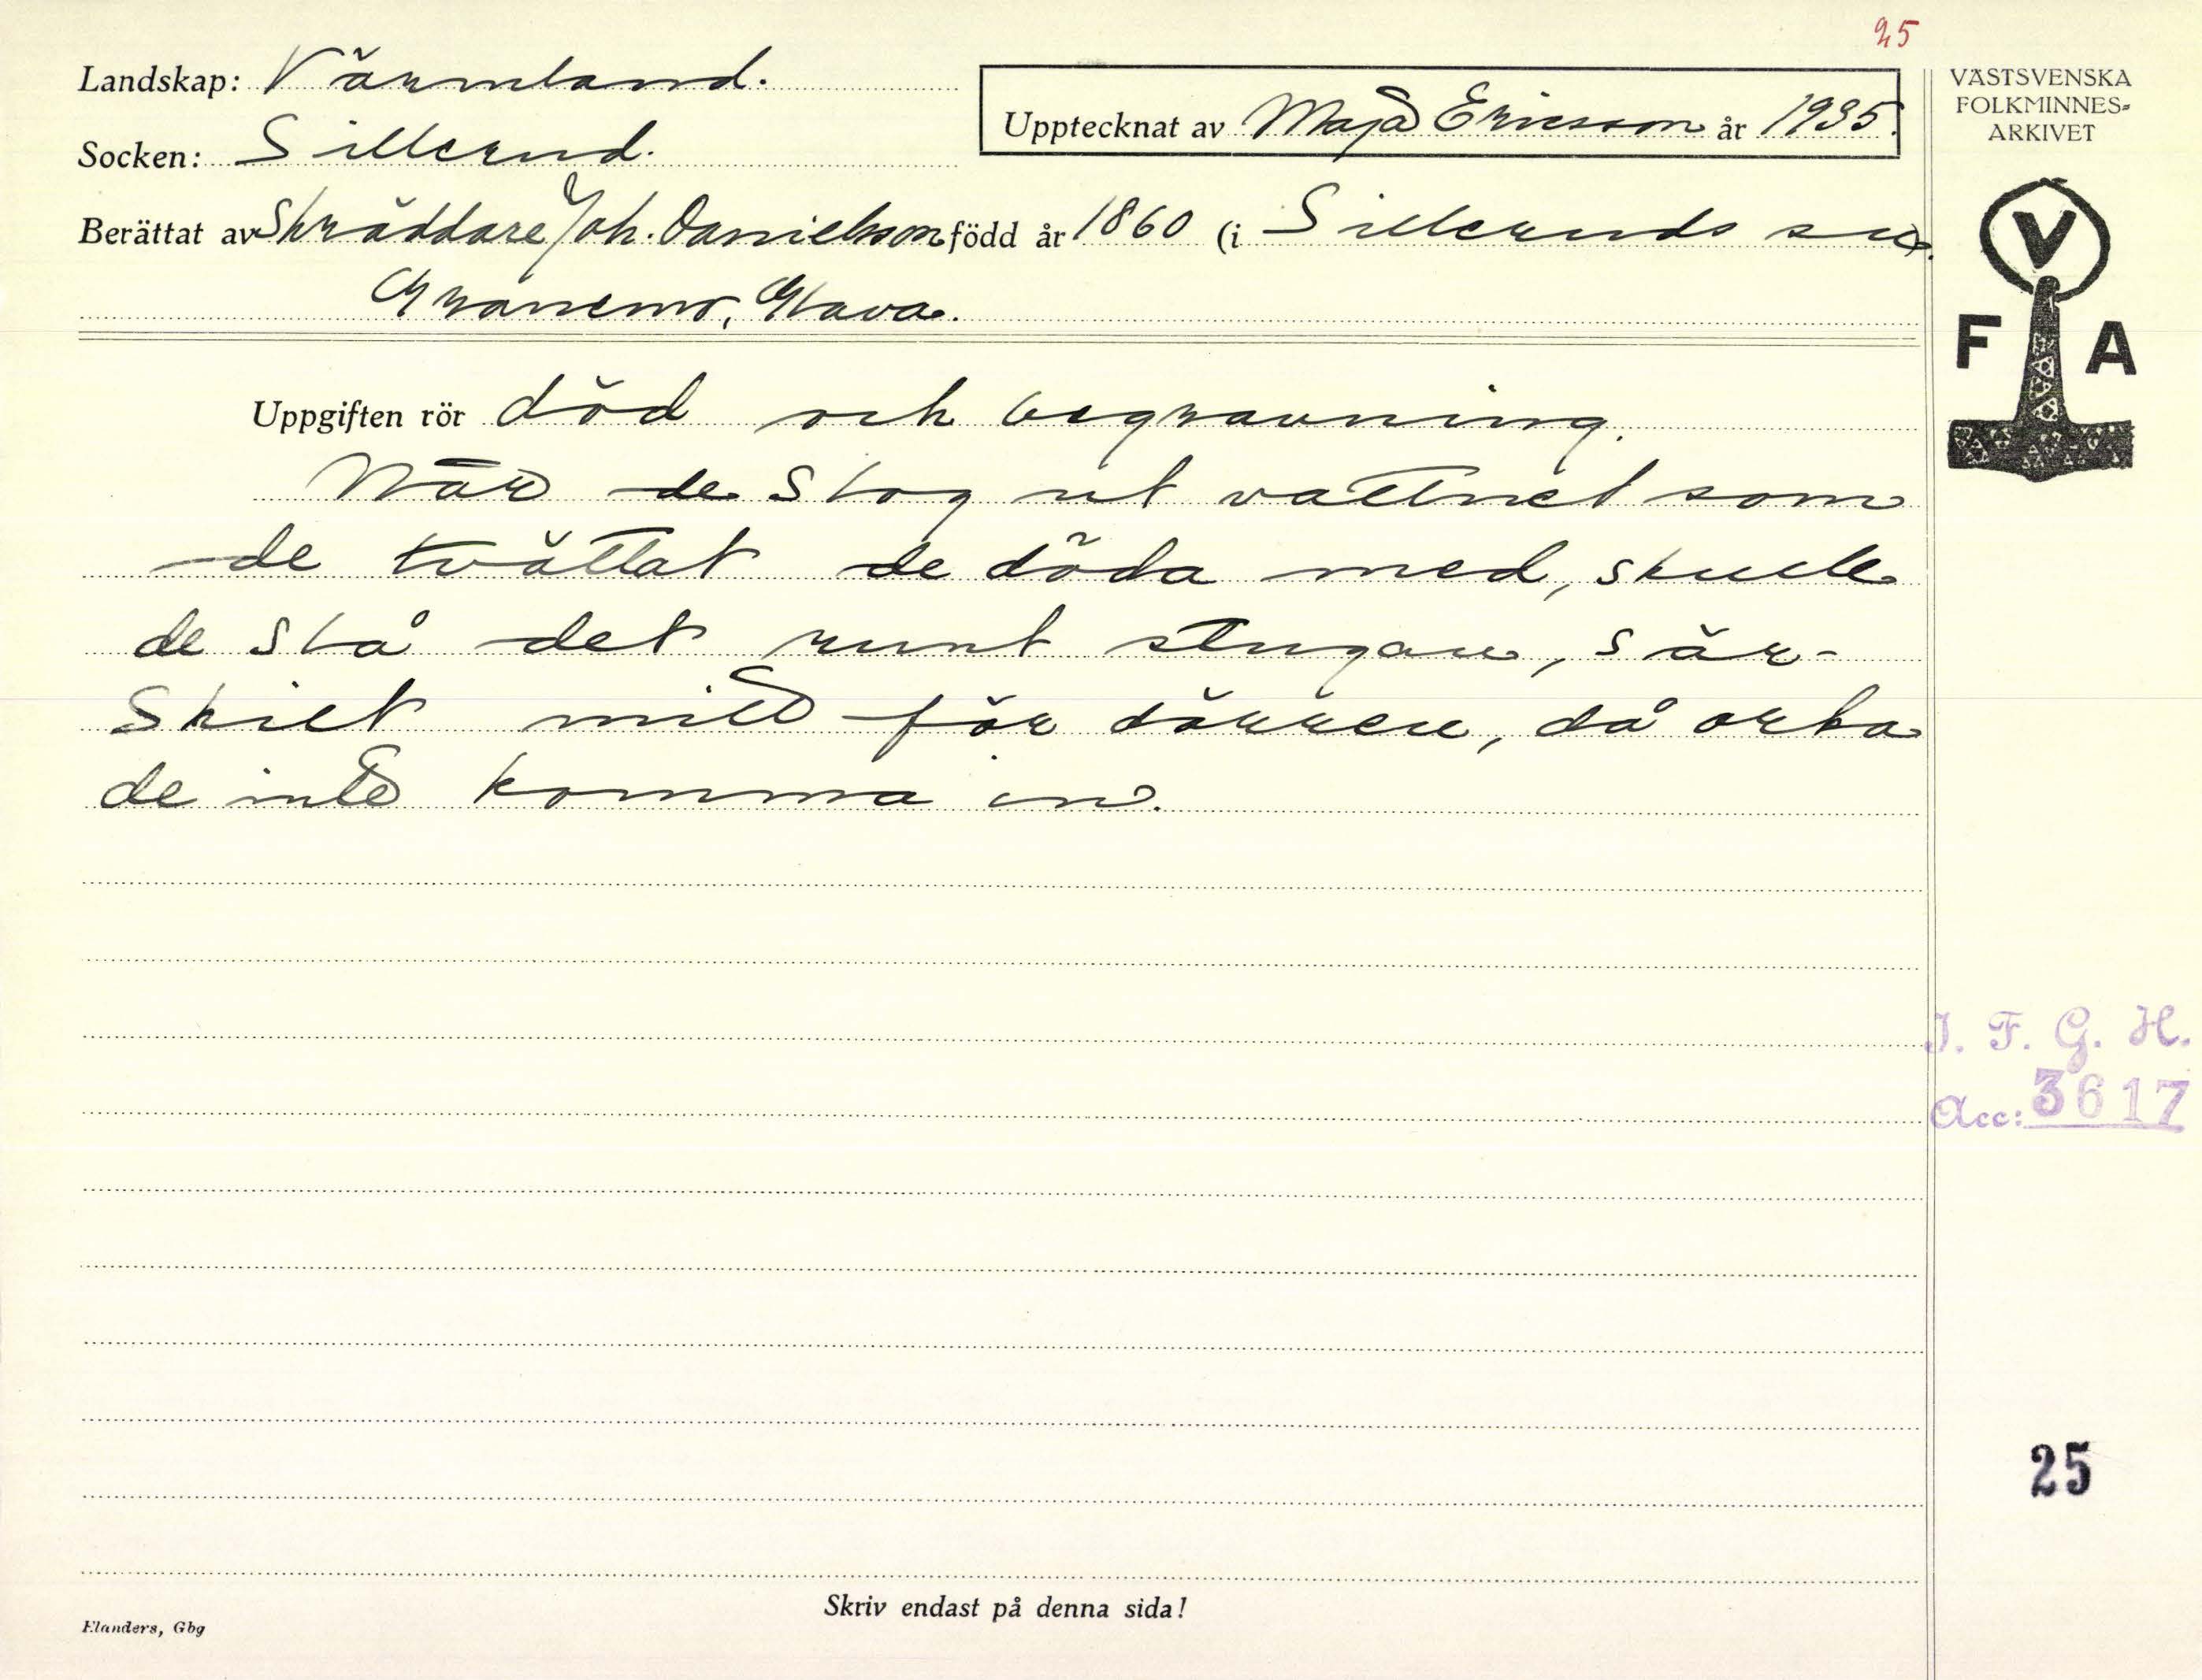 25
Landskap: Värmland.
Socken: Sillerud.
Upptecknat av Maja Ericsson år 1935.
Berättat av Skräddare Joh. Danielsson född år 1860 (i Silleruds sn).
Glava.
Uppgiften rör död och begravning.
När de slog ut vattnet som
de tvättat de döda med, skulle
de slå det runt stugan, sär-
skilt mitt för dörren, då orka
de inte komma in.
Skriv endast på denna sida!
Elanders, Gbg
VÄSTSVENSKA
FOLKMINNES-
ARKIVET
V
F A
I. F. G. H.
Acc: 3617
25